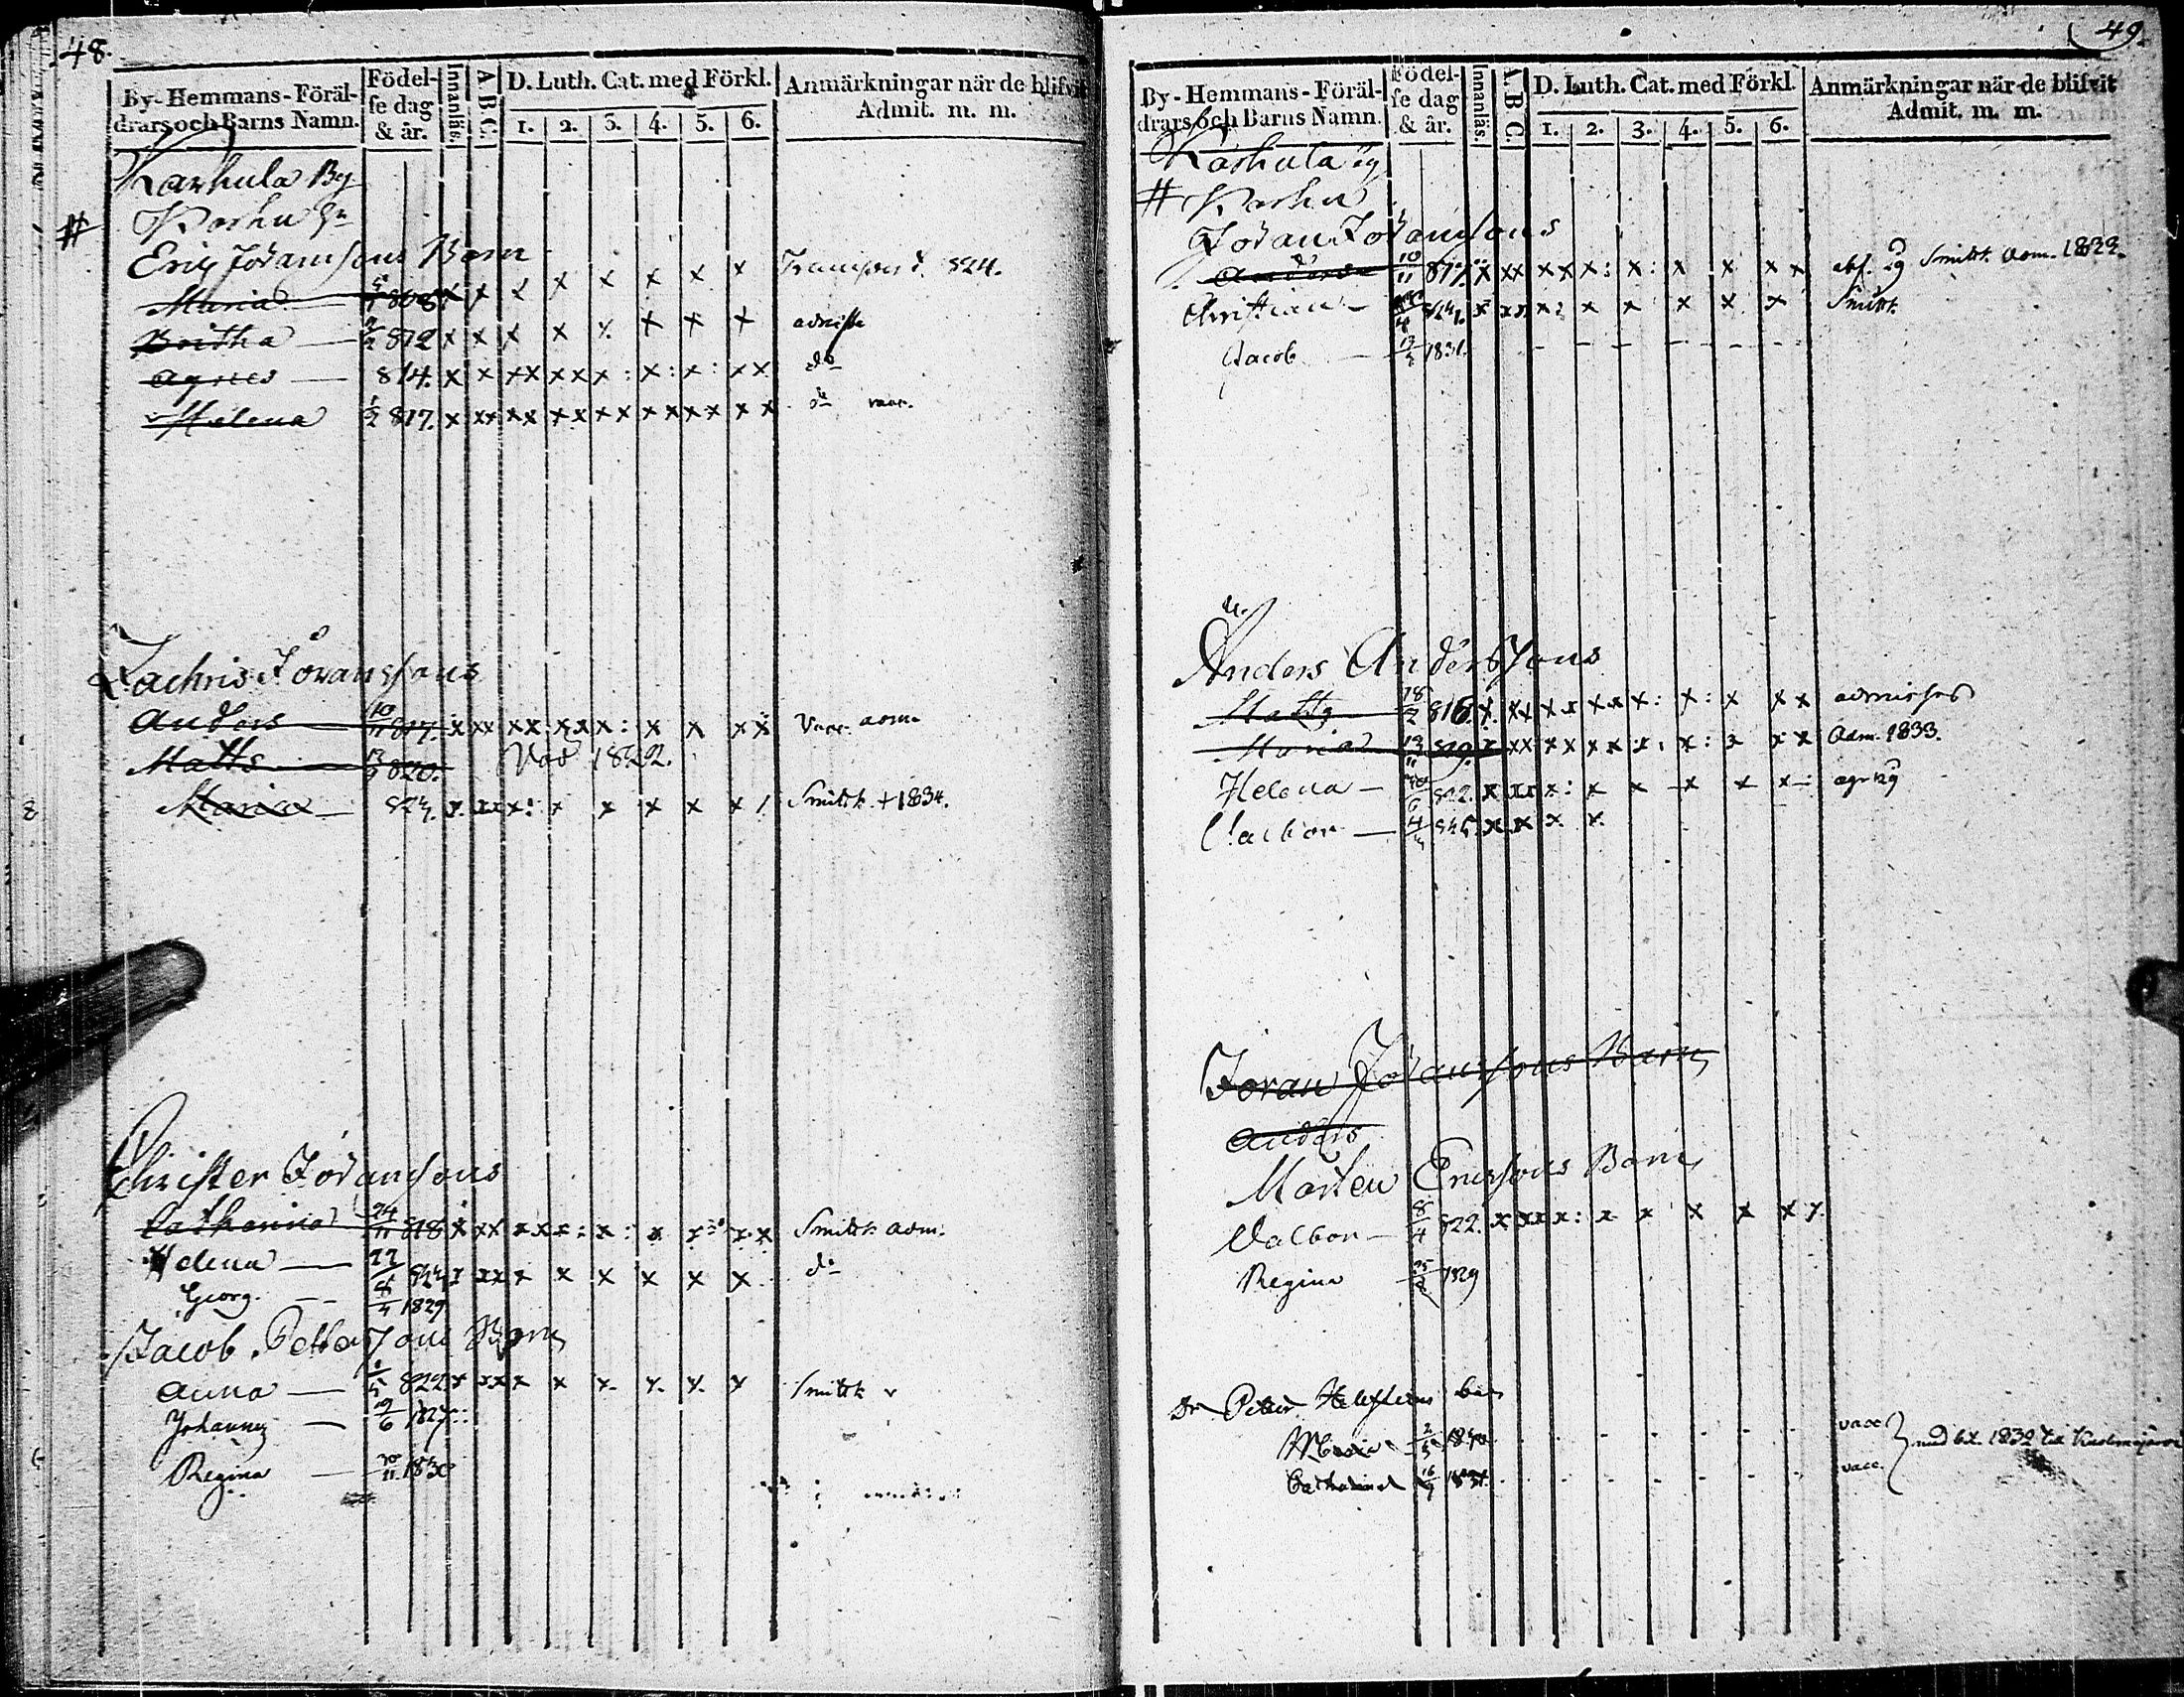 48.
By-Hemmans-Föräl-
drars och Barns Namn.
Födel-
se dag
& år.
Innanläs.
A B C.
D. Luth. Cat. med Förkl.
1. 2. 3. 4. 5. 6.
Anmärkningar när de blifvit
Admit. m. m.
Karhula By
# Karhu
Eric Jöransons Barn
Maria 808 x x x x x x x x 824.
Britha — 812 x x x x x x x x admiss
Agnes — 814. x x xx xx x: x: x: xx do
Helena 1/2 817. x xx xx xx xx xx xx xx do vacc.
Zachris Göranssons
Anders 10/11 817. x xx xx xx x: x x xx Vacc. adm.
Matts 820. Död 1822.
Maria — 824. x xx x: x x x x x Smittk. + 1834.
Christer Jöransons
Catharina 24/11 818 x xx xx x: x: x x: x x Smittk. adm.
Helena — 824 x xx x x x x x x do
Georg — 1829
Jacob Pettersons Barn
Anna — 1/5 822 x xx x x x x x x Smittk v
Johannes — 9/6 1827
Regina — 20/11 1830
49.
By-Hemmans-Föräl-
drars och Barns Namn.
Födel-
se dag
& år.
Innanläs.
A. B C.
D. Luth. Cat. med Förkl.
1. 2. 3. 4. 5. 6.
Anmärkningar när de blifvit
Admit. m. m.
Karhula By
# Karhu
Jöran Jöransons
Anders 10/11 817. x xx xx x: x: x x xx Smittk. adm. 1833.
Christian — 824. x xx x: x x x x x Smittk.
Jacob — 1831. - - - - - -
Anders Anderssons
Matts 18/2 816. x. xx xx xx x: x: x xx admisses
Maria 819. x xx xx xx x: x: x xx Adm. 1833.
Helena — 822. x xx x: x x x x x
Valbor — 4 825 x x x x.
Jöran Jöransons Barn
Anders
Mårten Ericsons Barn
Valbor — 8/4 822. x xx x: x x x x x x.
Regina 1829
Petter barn
Maria 1830 - - - - - - vacc.
Catharina 16/9 1831. - - - - - - vacc.
1832 till